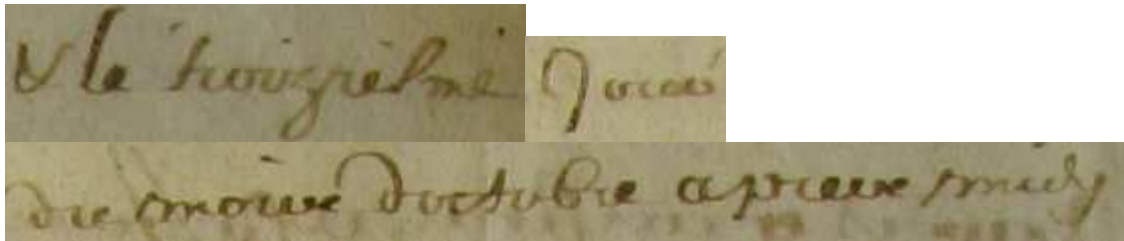 & le troizriesme Jour
du moiux doctobre apreux midy